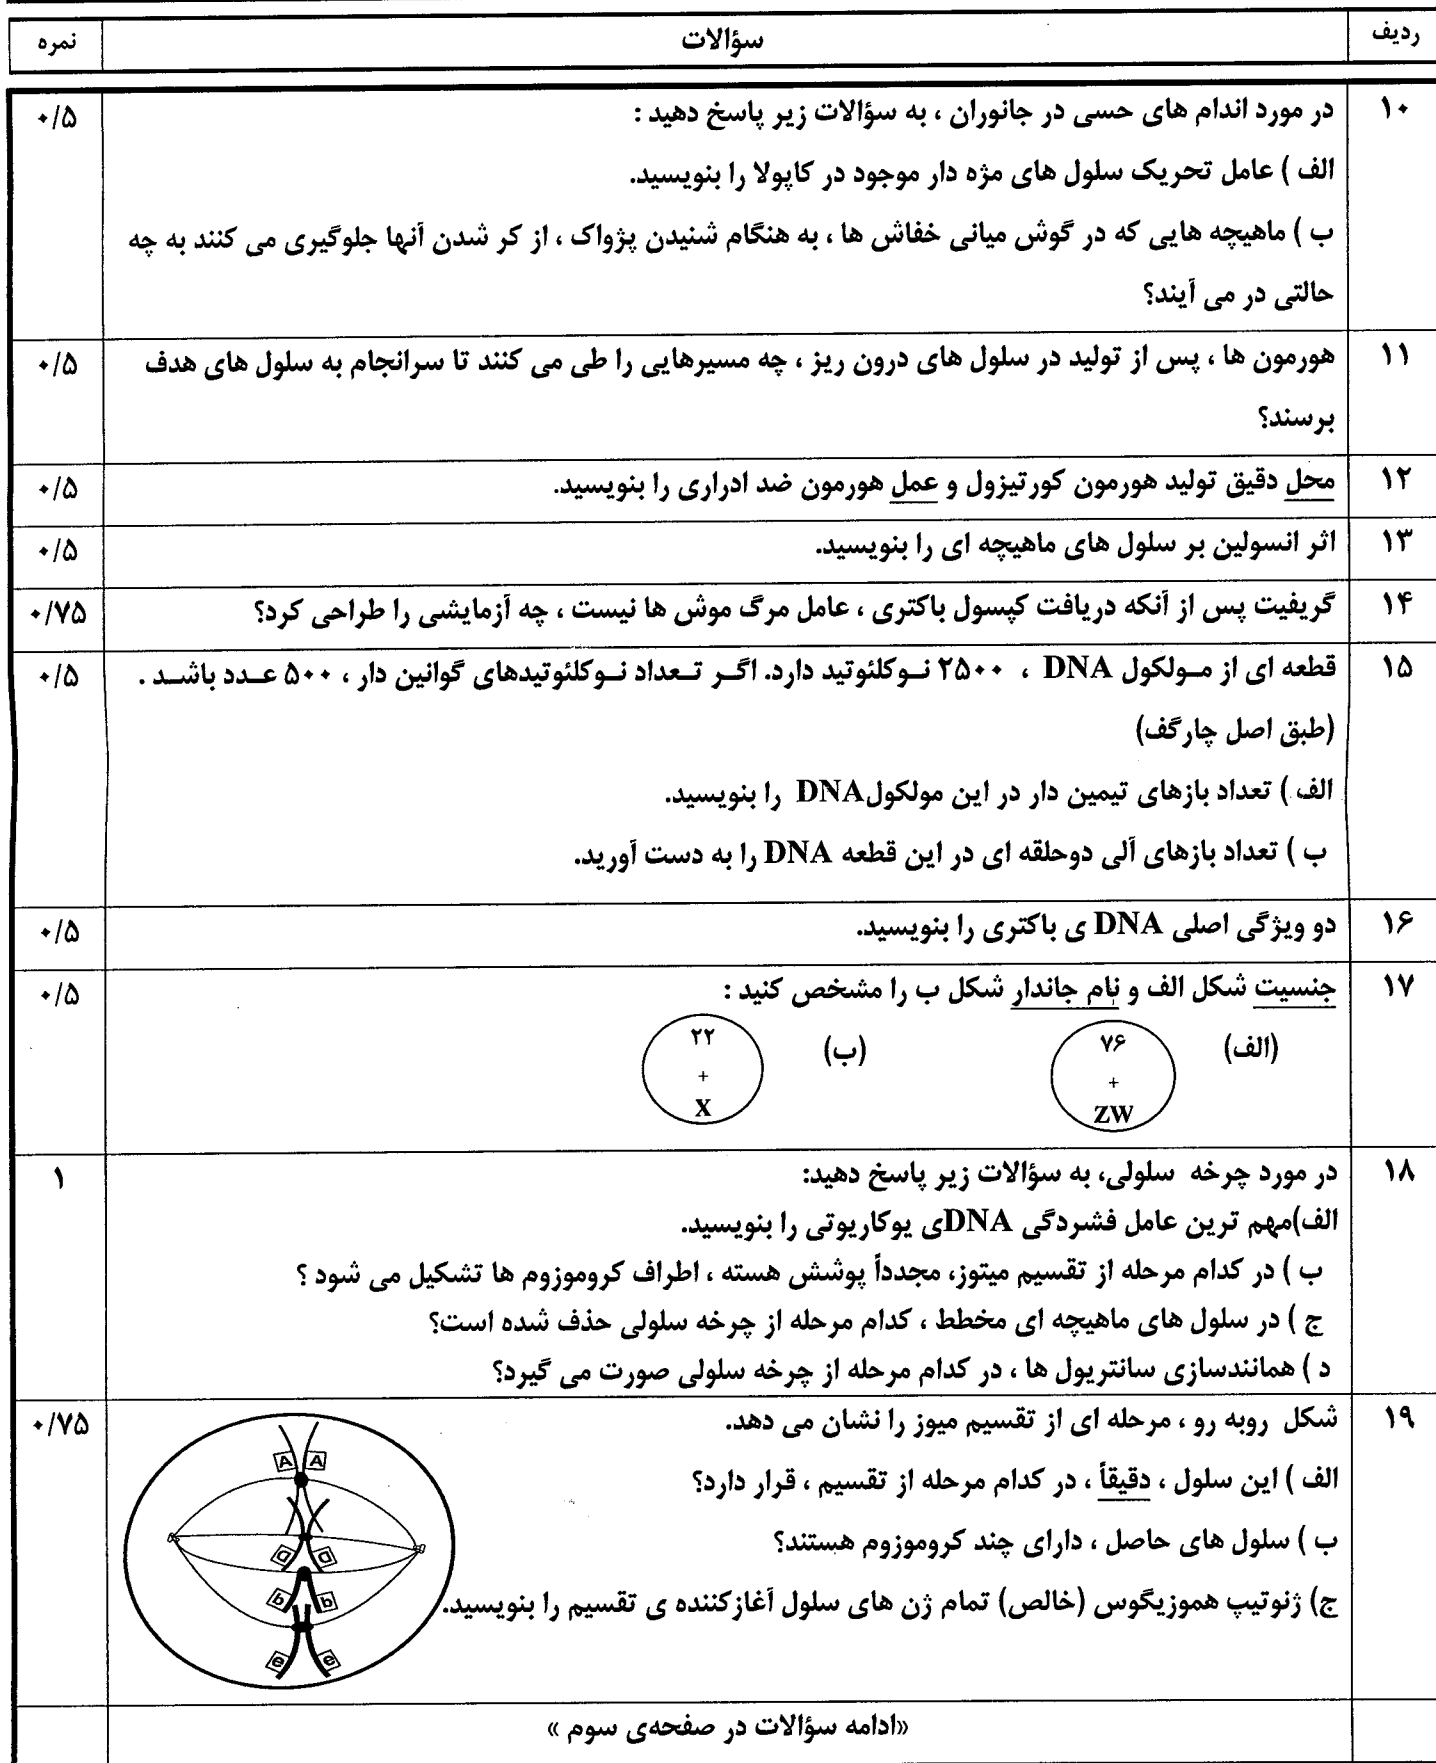 ردیف سؤالات نمره
۱۰ در مورد اندام های حسی در جانوران ، به سؤالات زیر پاسخ دهید : ۰/۵
الف ) عامل تحریک سلول های مژه دار موجود در کاپولا را بنویسید.
ب ) ماهیچه هایی که در گوش میانی خفاش ها ، به هنگام شنیدن پژواک ، از کر شدن آنها جلوگیری می کنند به چه
حالتی در می آیند؟
۱۱ هورمون ها ، پس از تولید در سلول های درون ریز ، چه مسیرهایی را طی می کنند تا سرانجام به سلول های هدف ۰/۵
برسند؟
۱۲ محل دقیق تولید هورمون کورتیزول و عمل هورمون ضد ادراری را بنویسید. ۰/۵
۱۳ اثر انسولین بر سلول های ماهیچه ای را بنویسید. ۰/۵
۱۴ گریفیت پس از آنکه دریافت کپسول باکتری ، عامل مرگ موش ها نیست ، چه آزمایشی را طراحی کرد؟ ۰/۷۵
۱۵ قطعه ای از مـولکول DNA ، ۲۵۰۰ نـوکلئوتید دارد. اگـر تـعداد نـوکلئوتیدهای گوانین دار ، ۵۰۰ عـدد باشـد . ۰/۵
(طبق اصل چارگف)
الف ) تعداد بازهای تیمین دار در این مولکولDNA را بنویسید.
ب ) تعداد بازهای آلی دوحلقه ای در این قطعه DNA را به دست آورید.
۱۶ دو ویژگی اصلی DNA ی باکتری را بنویسید. ۰/۵
۱۷ جنسیت شکل الف و نام جاندار شکل ب را مشخص کنید : ۰/۵
(الف) ۷۶ + ZW (ب) ۲۲ + X
۱۸ در مورد چرخه سلولی، به سؤالات زیر پاسخ دهید: ۱
الف)مهم ترین عامل فشردگی DNAی یوکاریوتی را بنویسید.
ب ) در کدام مرحله از تقسیم میتوز، مجدداً پوشش هسته ، اطراف کروموزوم ها تشکیل می شود ؟
ج ) در سلول های ماهیچه ای مخطط ، کدام مرحله از چرخه سلولی حذف شده است؟
د ) همانندسازی سانتریول ها ، در کدام مرحله از چرخه سلولی صورت می گیرد؟
۱۹ شکل روبه رو ، مرحله ای از تقسیم میوز را نشان می دهد. ۰/۷۵
الف ) این سلول ، دقیقاً ، در کدام مرحله از تقسیم ، قرار دارد؟
ب ) سلول های حاصل ، دارای چند کروموزوم هستند؟
ج) ژنوتیپ هموزیگوس (خالص) تمام ژن های سلول آغازکننده ی تقسیم را بنویسید.
A A
D D
b b
e e
«ادامه سؤالات در صفحه‌ی سوم »